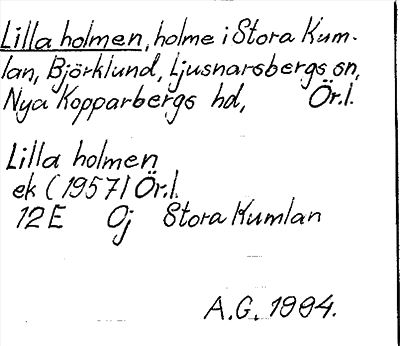 Lilla holmen, holme i Stora Kum-
lan, Björklund, Ljusnarsbergs sn,
Nya Kopparbergs hd, Ör.l.
Lilla holmen
ek (1957) Ör.l.
12E Oj Stora Kumlan
A.G. 1994.